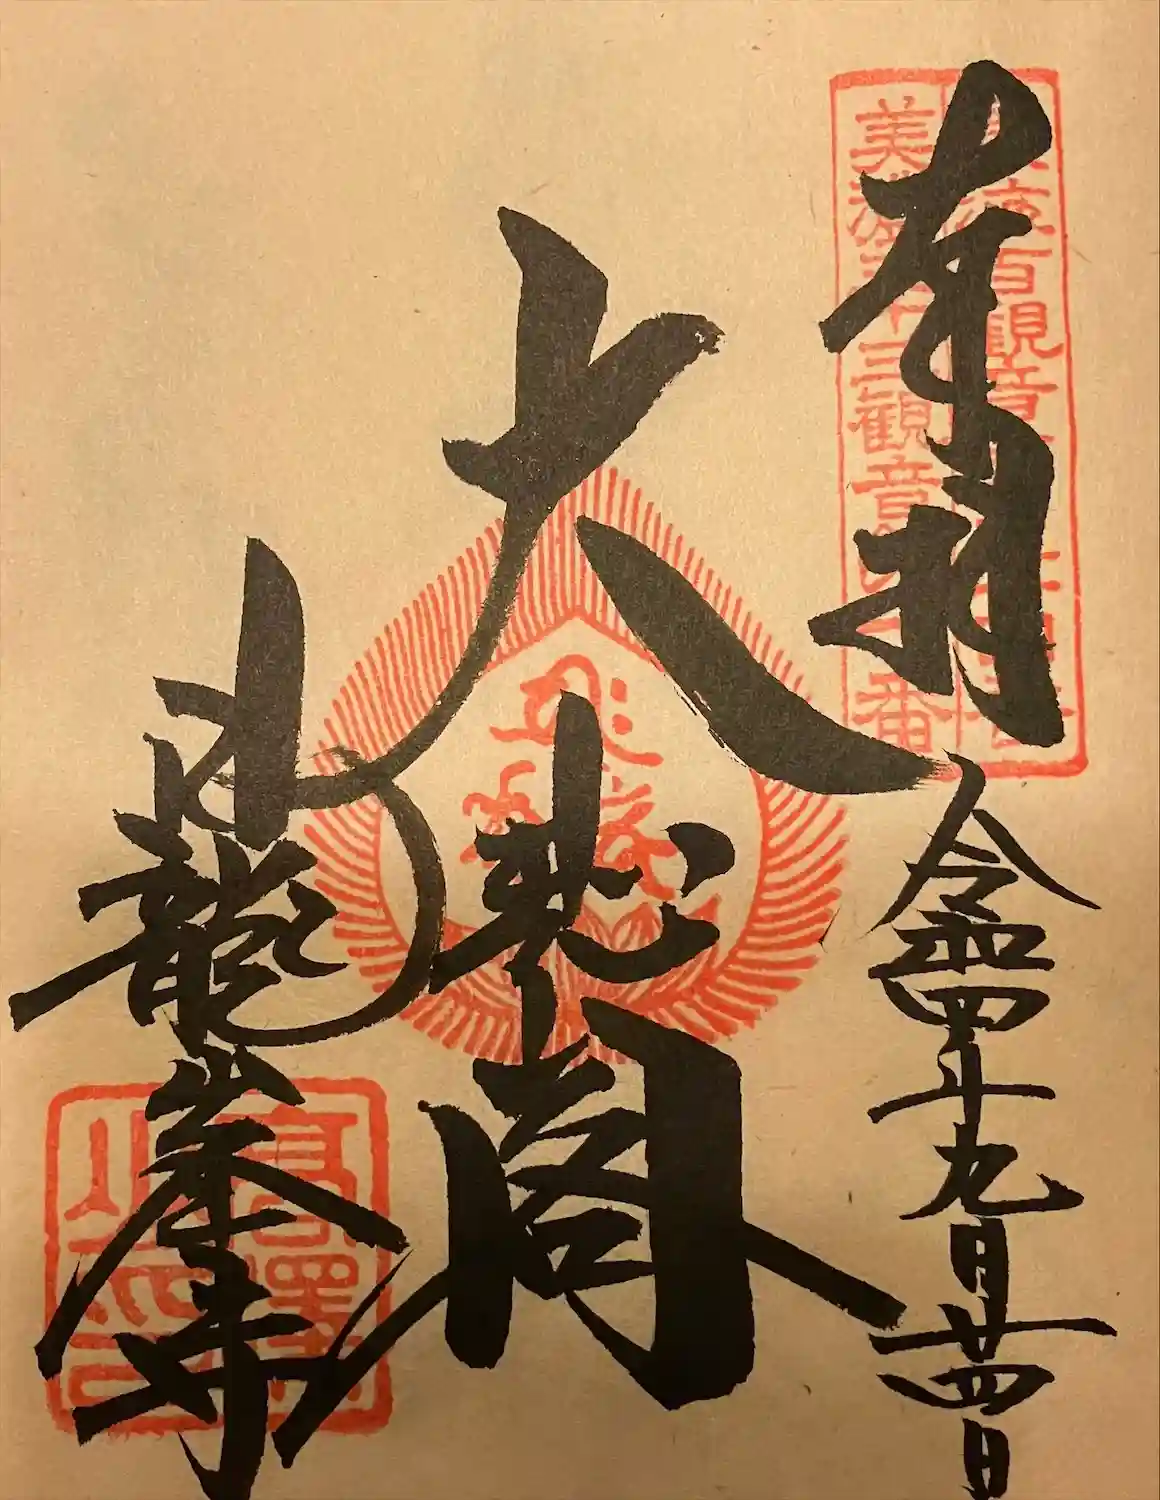 奉拝
百観音
美濃三十三観音
番
令和四年九月廿四日
大悲閣
日龍峯寺
高澤